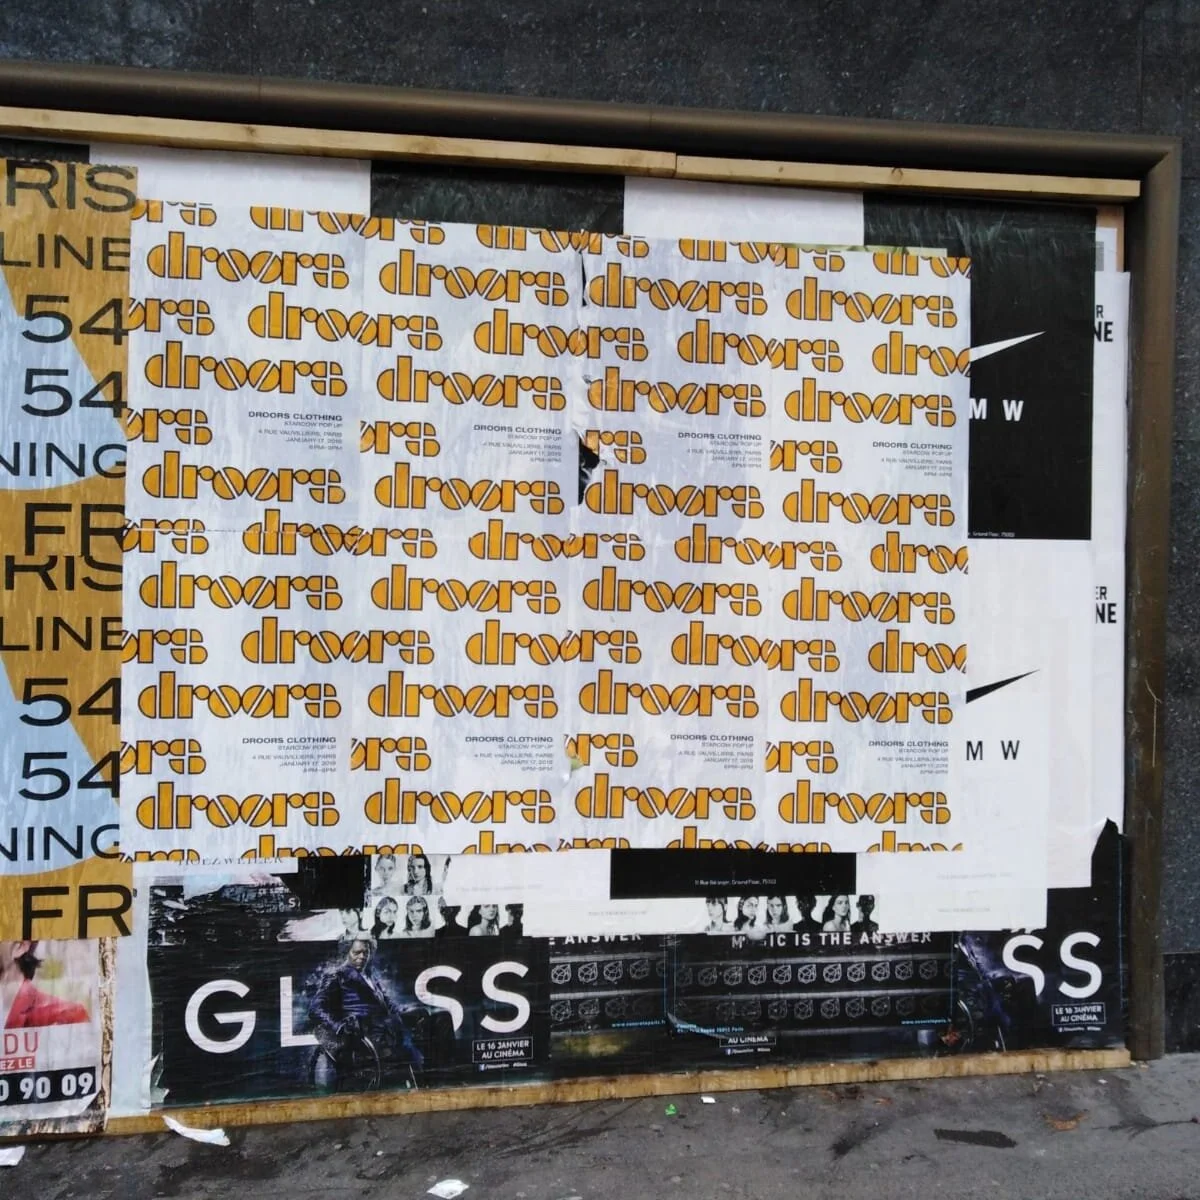 RIS
LINE
54
54
NING
FR
RIS
LINE
54
54
NING
FR
droors droors droors droors
droors droors droors
droors droors droors droors
DROORS CLOTHING
STARCOW POP UP
4 RUE VAUVILLIERS, PARIS
JANUARY 17, 2019
6PM–9PM
DROORS CLOTHING
STARCOW POP UP
4 RUE VAUVILLIERS, PARIS
JANUARY 17, 2019
6PM–9PM
DROORS CLOTHING
STARCOW POP UP
4 RUE VAUVILLIERS, PARIS
JANUARY 17, 2019
6PM–9PM
DROORS CLOTHING
STARCOW POP UP
4 RUE VAUVILLIERS, PARIS
JANUARY 17, 2019
6PM–9PM
droors droors droors droors
droors droors droors
droors droors droors droors
droors droors droors
droors droors droors droors
DROORS CLOTHING
STARCOW POP UP
4 RUE VAUVILLIERS, PARIS
JANUARY 17, 2019
6PM–9PM
DROORS CLOTHING
STARCOW POP UP
4 RUE VAUVILLIERS, PARIS
JANUARY 17, 2019
6PM–9PM
DROORS CLOTHING
STARCOW POP UP
4 RUE VAUVILLIERS, PARIS
JANUARY 17, 2019
6PM–9PM
DROORS CLOTHING
STARCOW POP UP
4 RUE VAUVILLIERS, PARIS
JANUARY 17, 2019
6PM–9PM
droors droors droors droors
M W
Ground Floor, 75003
M W
R
NE
ER
NE
HOLZWEILER
11 Rue Béranger, Ground Floor, 75003
GLASS
LE 16 JANVIER
AU CINÉMA
E ANSWER
MUSIC IS THE ANSWER
www.concreteparis.fr
75012 Paris
AU CINÉMA
SS
LE 16 JANVIER
AU CINÉMA
DU
EZ LE
0 90 09